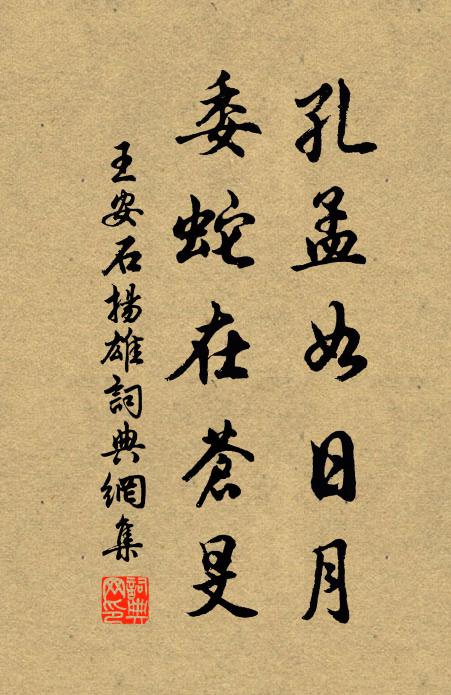 孔孟如日月
委蛇在蒼旻
王安石揚雄詞典網集
詞典网印